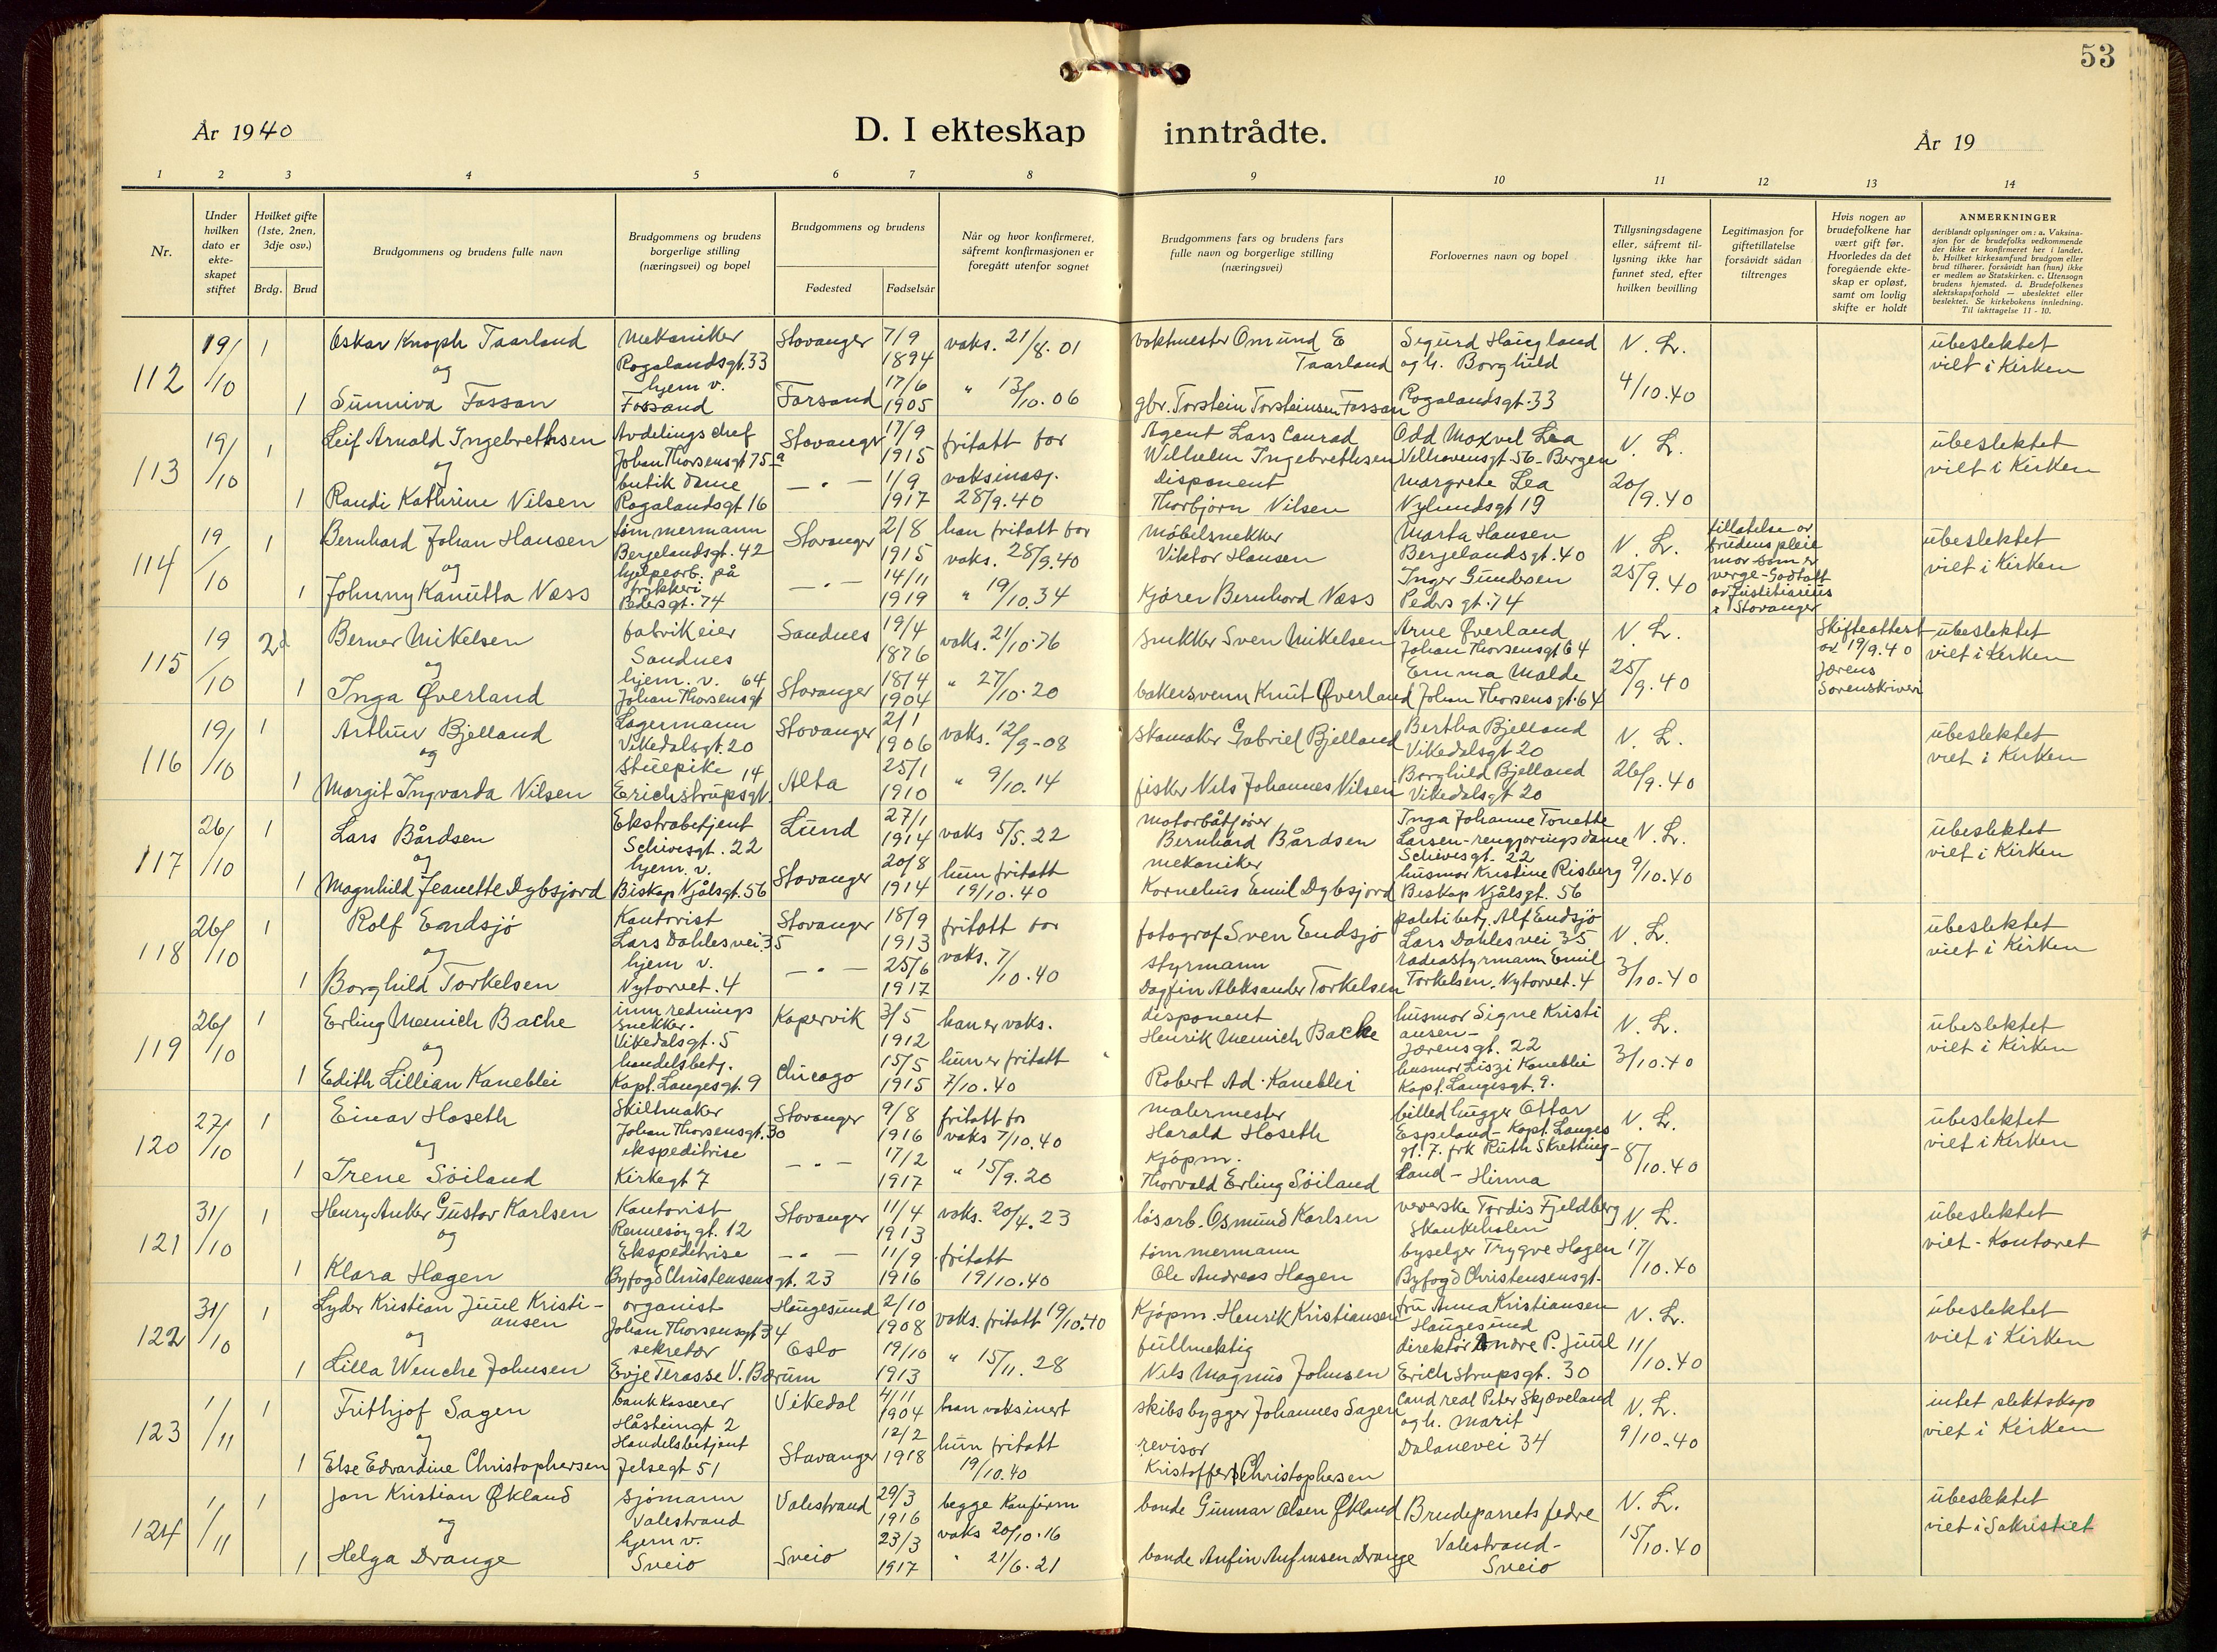 53
År 1940
D. I ekteskap inntrådte.
År 19
1 2 3 4 5 6 7 8 9 10 11 12 13 14
Nr.
Under hvilken dato er ekte-skapet stiftet
Hvilket gifte (1ste, 2nen, 3dje osv.)
Brdg. Brud
Brudgommens og brudens fulle navn
Brudgommens og brudens borgerlige stilling (næringsvei) og bopel
Brudgommens og brudens
Fødested
Fødselsår
Når og hvor konfirmeret, såfremt konfirmasjonen er foregått utenfor sognet
Brudgommens fars og brudens fars fulle navn og borgerlige stilling (næringsvei)
Forlovernes navn og bopel
Tillysningsdagene eller, såfremt til-lysning ikke har funnet sted, efter hvilken bevilling
Legitimasjon for giftetillatelse forsåvidt sådan tiltrenges
Hvis nogen av brudefolkene har vært gift før. Hvorledes da det foregående ekte-skap er opløst, samt om lovlig skifte er holdt
ANMERKNINGER
deriblandt oplysninger om: a. Vaksina-sjon for de brudefolks vedkommende der ikke er konfirmeret her i landet. b. Hvilket kirkesamfund brudgom eller brud tilhører, forsåvidt han (hun) ikke er medlem av Statskirken. c. Utensogn brudens hjemsted. d. Brudefolkenes slektskapsforhold — ubeslektet eller beslektet. Se kirkebokens innledning. Til iakttagelse 11 - 10.
112 19/10 1 Oskar Knoph Taarland Mekaniker Rogalandsgt. 33 Stavanger 7/9 1894 vaks. 21/8. 01 vaktmester Omund E Taarland Sigurd Haugland og h. Borghild Rogalandsgt. 33 N. L. 4/10.40 ubeslektet viet i Kirken
og
1 Sunniva Fossan hjem v. Fossand Forsand 17/6 1905 " 13/10. 06 gbr. Torstein Torsteinsen Fossan
113 19/10 1 Leif Arnold Ingebrethsen Avdelings chef Johan Thorsensgt 75 a Stavanger 17/9 1915 fritatt for vaksinasj. 28/9.40 Agent Lars Conrad Wilhelm Ingebrethsen Odd Moxvel Lea Velhavensgt 56 - Bergen N. L. 20/9.40 ubeslektet viet i Kirken
og
1 Randi Kathrine Nilsen butik dame Rogalandsgt 16 — " — 1/9 1917 Disponent Thorbjørn Nilsen Margrete Lea Nylundsgt 19
114 19/10 1 Bernhard Johan Hansen tømmermann Bergelandsgt. 42 Stavanger 2/8 1915 han fritatt for vaks. 28/9.40 Møbelsnekker Viktor Hansen Marta Hansen Bergelandsgt. 40 N. L. 25/9.40 tillatelse av brudens pleie mor som er verge - Godtatt av Justitiarius i Stavanger ubeslektet viet i Kirken
og
1 Johnny Kanutta Næss hjelpearb. på trykkeri Pedersgt. 74 — " — 14/11 1919 " 19/10. 34 Kjører Bernhard Næss Inger Gundersen Peders gt. 74
115 19/10 2d Berner Mikelsen fabrikeier Sandnes Sandnes 19/4 1876 vaks. 21/10.76 Snekker Sven Mikelsen Arne Øverland Johan Thorsensgt 64 N. L. 25/9.40 Skifteattest av 19/9.40 Jærens Sorenskriveri ubeslektet viet i Kirken
og
1 Inga Øverland hjem. v. Johan Thorsensgt 64 Stavanger 18/4 1904 " 27/10.20 bakersvenn Knut Øverland Emma Malde Johan Thorsensgt. 64
116 19/10 1 Arthur Bjelland Lagermann Vikedalsgt. 20 Stavanger 2/1 1906 vaks. 12/9-08 Skomaker Gabriel Bjelland Bertha Bjelland Vikedalsgt 20 N. L. 26/9.40 ubeslektet viet i Kirken
og
1 Margit Ingvarda Nilsen Stuepike Erichstrupsgt. 14 Alta 25/1 1910 " 9/10. 14 fisker Nils Johannes Nilsen Borghild Bjelland Vikedalsgt 20
117 26/10 1 Lars Bårdsen Ekstrabetjent Schivesgt. 22 Lund 27/1 1914 vaks 5/5. 22 motorbåtfører Bernhard Bårdsen Inga Johanne Tonette Larsen - rengjøringsdame Schivesgt. 22 N. L. 9/10.40 ubeslektet viet i Kirken
og
1 Magnhild Jeanette Dybsjord hjem. v. Biskop Njålsgt. 56 Stavanger 20/8 1914 hun fritatt 19/10.40 mekaniker Kornelius Emil Dybsjord husmor Kristine Risberg Biskop Njålsgt. 56
118 26/10 1 Rolf Endsjø Kontorist Lars Dahlesvei 35 Stavanger 18/9 1913 fritatt for vaks. 7/10.40 fotograf Sven Endsjø politibetj. Alf Endsjø Lars Dahles vei 35 N. L. 3/10.40 ubeslektet viet i Kirken
og
1 Borghild Torkelsen hjem v. Nytorvet. 4 — " — 25/6 1917 styrmann Dagfin Aleksander Torkelsen radiostyrmann Emil Torkelsen. Nytorvet. 4
119 26/10 1 Erling Meinich Bache innrednings snekker. Vikedalsgt. 5 Kopervik 3/5 1912 han er vaks. disponent Henrik Meinich Bache husmor Signe Kristiansen - Jærensgt. 22 N. L. 3/10.40 ubeslektet viet i Kirken
og
1 Edith Lillian Kaneblei handelsbetj. Kapt. Langesgt. 9 Chicago 15/5 1915 hun er fritatt 7/10.40 Robert Ad. Kaneblei husmor Liszi Kaneblei Kapt. Langesgt. 9.
120 27/10 1 Einar Hoseth Skiltmaker Johan Thorsensgt. 30 Stavanger 9/8 1916 fritatt for vaks 7/10.40 Malermester Harald Hoseth billedhugger Ottar Espeland - Kapt. Langes gt. 7. N. L. 8/10.40 ubeslektet viet i Kirken
og
1 Irene Söiland ekspeditrise Kirkegt 7 — " — 17/2 1917 " 15/9. 20 Kjøpm. Thorvald Erling Söiland frk Ruth Skretting-Land - Hinna
121 31/10 1 Henry Anker Gustav Karlsen Kontorist Rennesøygt. 12 Stavanger 11/4 1913 vaks. 20/4. 23 løsarb. Osmund Karlsen veverske Tordis Fjeldberg Skankeholen N. L. 17/10.40 ubeslektet viet - Kontoret
og
1 Klara Hagen Ekspeditrise Byfogd Christensensgt. 23 — " — 11/9 1916 fritatt 19/10.40 tømmermann Ole Andreas Hagen byselger Trygve Hagen Byfogd Christensensgt.
122 31/10 1 Lyder Kristian Juul Kristiansen organist Johan Thorsensgt 34 Haugesund 2/10 1908 vaks. fritatt 19/10.40 Kjøpm. Henrik Kristiansen fru Anna Kristiansen Haugesund N. L. 11/10.40 ubeslektet viet i Kirken
og
1 Lilla Wenche Johnsen sekretær Evje Terasse V. Bærum Oslo 19/10 1913 " 15/11. 28 fullmektig Nils Magnus Johnsen direktør Andre P. Juul Erichstrupsgt. 30
123 1/11 1 Frithjof Sagen bankkasserer Håsteinsgt 2 Vikedal 4/11 1904 han vaksinert skibsbygger Johannes Sagen Cand real Peter Skjæveland og h. Marit Dalanevei 34 N. L. 9/10.40 intet slektskap viet i Kirken
og
1 Else Edvardine Christophersen Handelsbetjent Jelsegt 51 Stavanger 12/2 1918 hun fritatt 19/10.40 revisor Kristoffer Christophersen
124 1/11 1 Jon Kristian Økland Sjömann Valestrand Valestrand 29/3 1916 begge Konfirm vaks 20/10.16 bonde Gunnar Olsen Økland Brudeparrets fedre Valestrand - Sveio N. L. 15/10.40 ubeslektet viet i Sakristiet
og
1 Helga Drange hjem v. Sveio Sveio 23/3 1917 " 21/6.21 bonde Anfin Anfinsen Drange